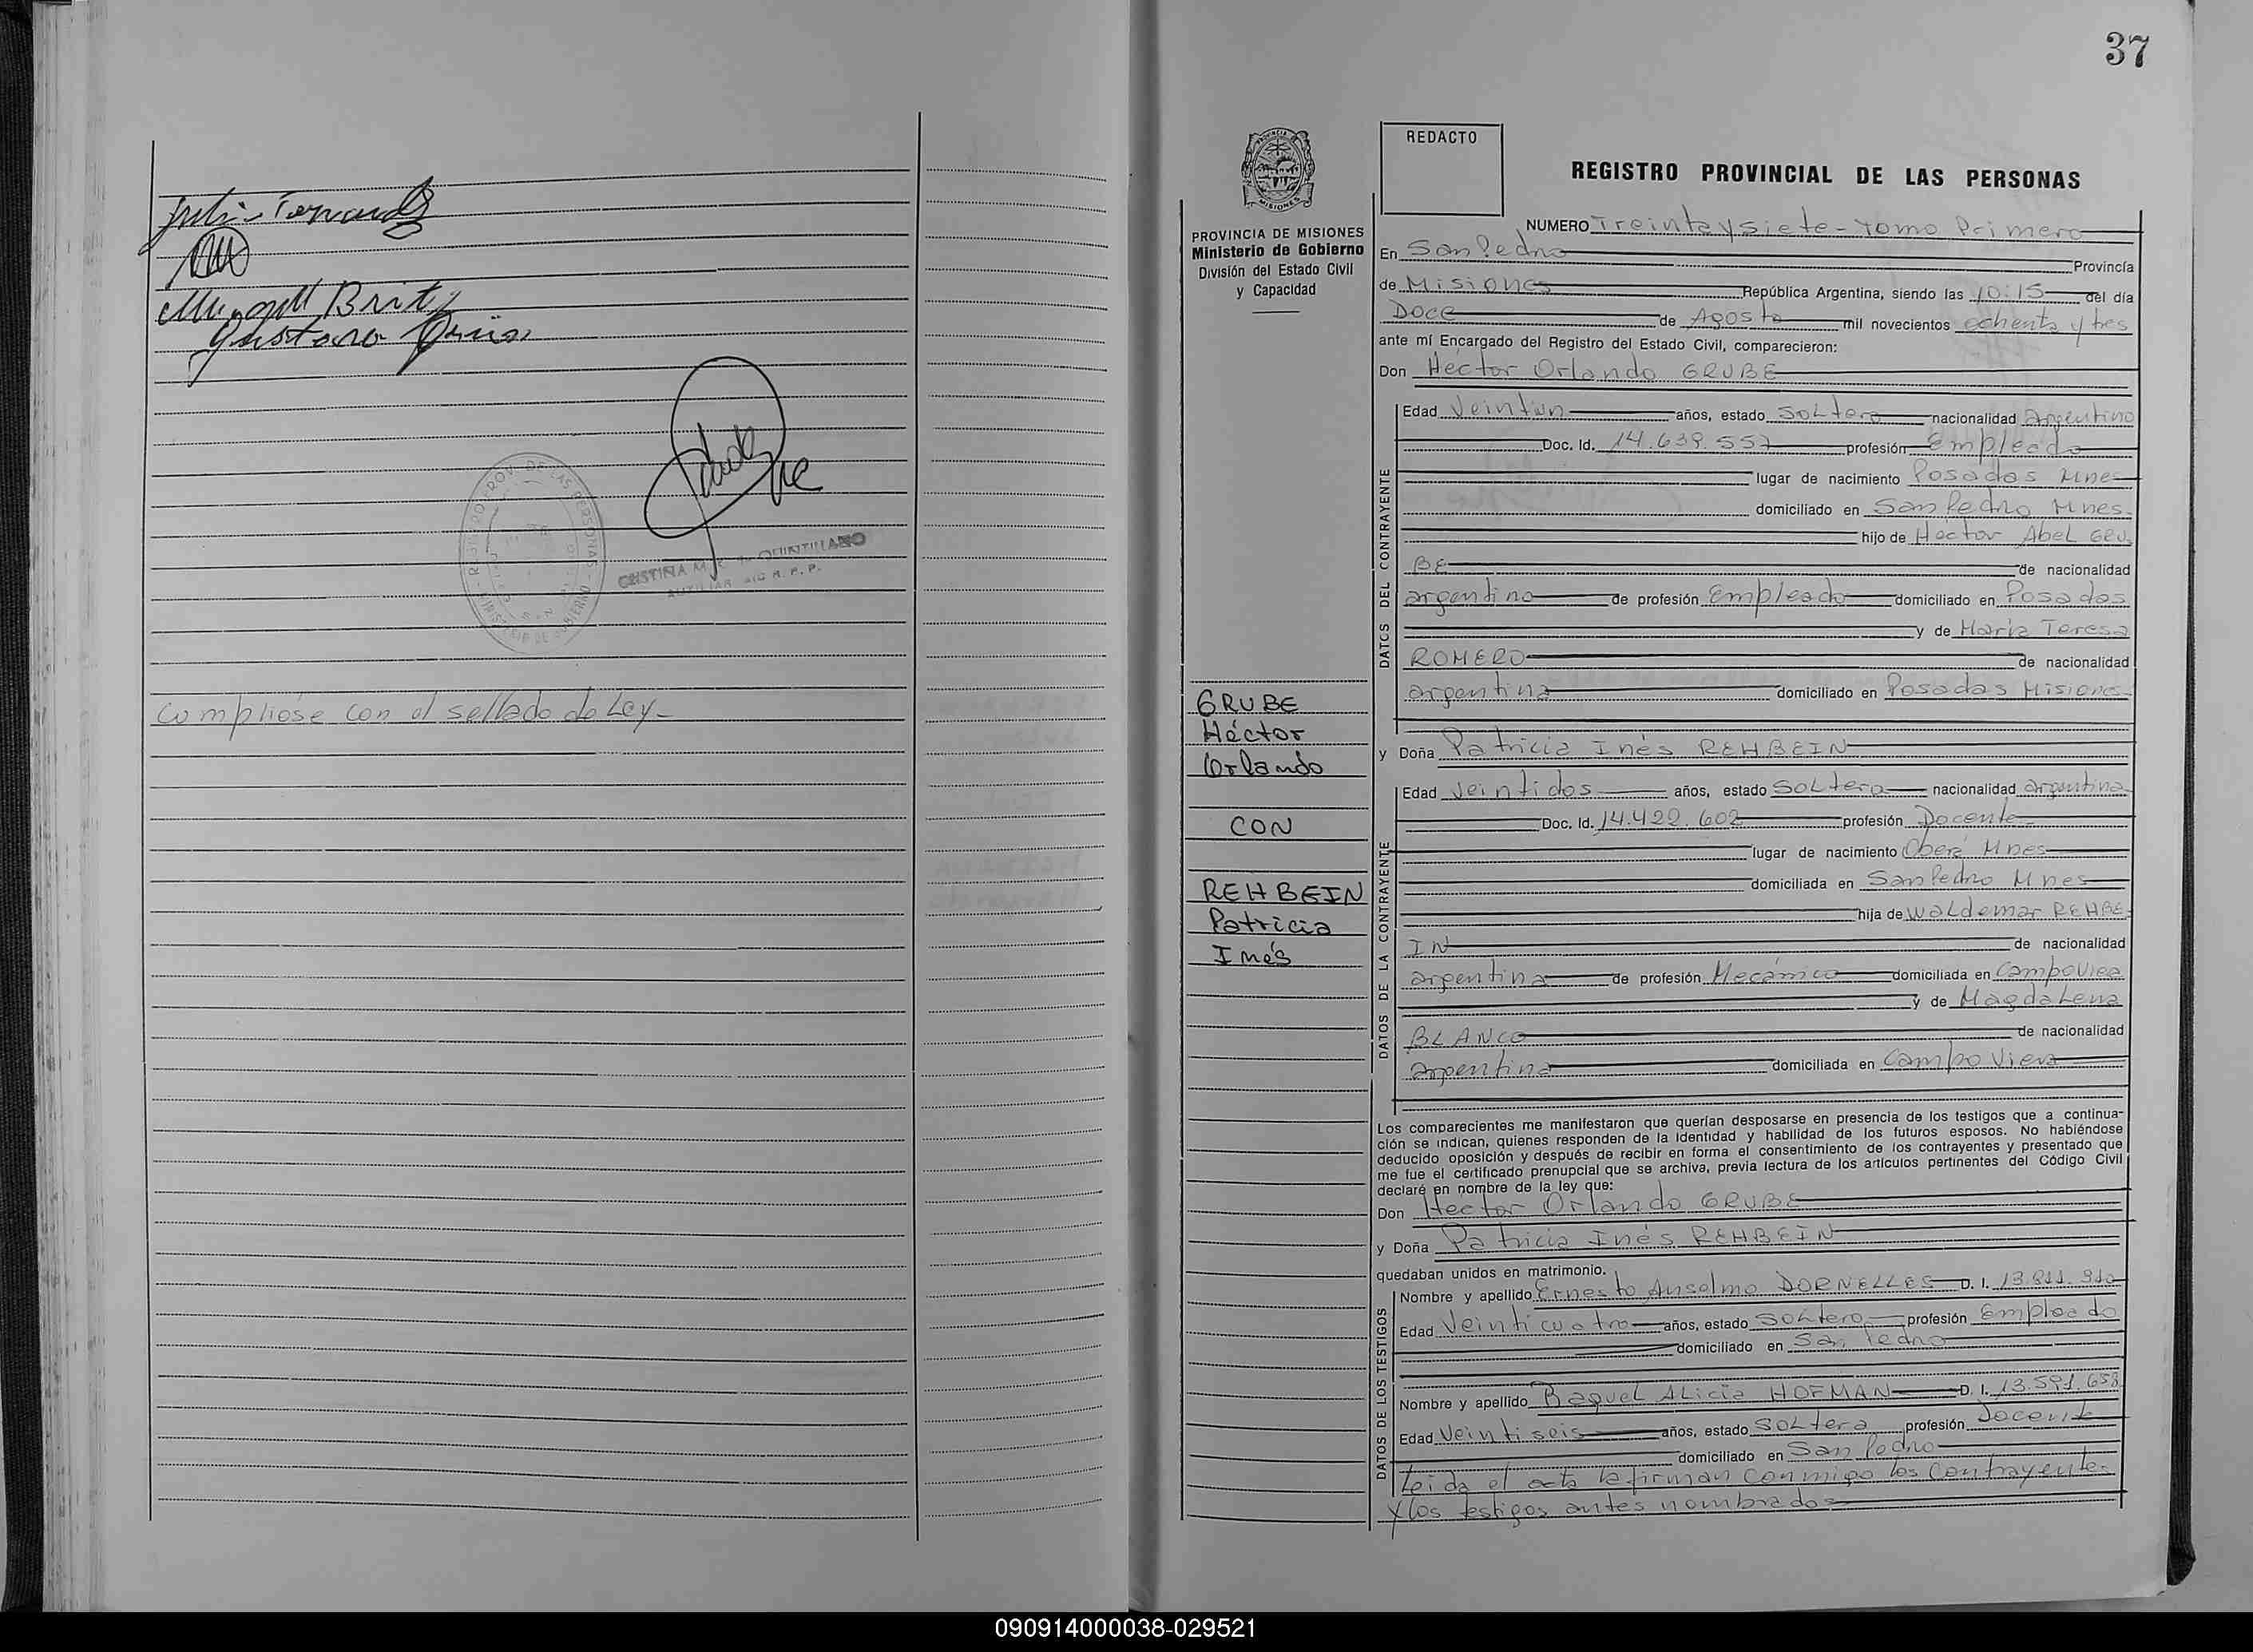 Miguel Brit
Gustavo
REGISTRO PROV. DE LAS PERSONAS
MINISTERIO DE GOBIERNO
CRISTINA M. QUINTILLANO
AUXILIAR R. P. P.
Cumpliose con el sellado de Ley-
37
REDACTO
PROVINCIA
MISIONES
PROVINCIA DE MISIONES
Ministerio de Gobierno
División del Estado Civil
y Capacidad
GRUBE
Héctor
Orlando
CON
REHBEIN
Patricia
Inés
REGISTRO PROVINCIAL DE LAS PERSONAS
NUMERO Treinta y siete - Tomo Primero
En San Pedro Provincia
de Misiones República Argentina, siendo las 10:15 del día
Doce de Agosto mil novecientos ochenta y tres
ante mí Encargado del Registro del Estado Civil, comparecieron:
Don Héctor Orlando GRUBE
DATOS DEL CONTRAYENTE
Edad Veintiun años, estado Soltero nacionalidad Argentino
Doc. Id. 14.639.557 profesión Empleado
lugar de nacimiento Posadas Mnes
domiciliado en San Pedro Mnes.
hijo de Héctor Abel GRU
BE de nacionalidad
argentino de profesión Empleado domiciliado en Posadas
y de María Teresa
ROMERO de nacionalidad
argentina domiciliado en Posadas Misiones
y Doña Patricia Inés REHBEIN
DATOS DE LA CONTRAYENTE
Edad Veintidos años, estado Soltera nacionalidad argentina
Doc. Id. 14.422.602 profesión Docente
lugar de nacimiento Oberá Mnes
domiciliada en San Pedro Mnes
hija de Waldemar REHBE
IN de nacionalidad
argentina de profesión Mecánico domiciliada en Campo Viera
y de Magdalena
BLANCO de nacionalidad
argentina domiciliada en Campo Viera
Los comparecientes me manifestaron que querían desposarse en presencia de los testigos que a continua-
ción se indican, quienes responden de la identidad y habilidad de los futuros esposos. No habiéndose
deducido oposición y después de recibir en forma el consentimiento de los contrayentes y presentado que
me fue el certificado prenupcial que se archiva, previa lectura de los artículos pertinentes del Código Civil
declaré en nombre de la ley que:
Don Hector Orlando GRUBE
y Doña Patricia Inés REHBEIN
quedaban unidos en matrimonio.
DATOS DE LOS TESTIGOS
Nombre y apellido Ernesto Anselmo DORNELLES D. I. 13.811.910
Edad Veinticuatro años, estado Soltero profesión Empleado
domiciliado en San Pedro
Nombre y apellido Raquel Alicia HOFMAN D. I. 13.591.658
Edad Veintiseis años, estado Soltera profesión Docente
domiciliado en San Pedro
Leida el acta la firman conmigo los contrayentes
y los testigos antes nombrados
090914000038-029521